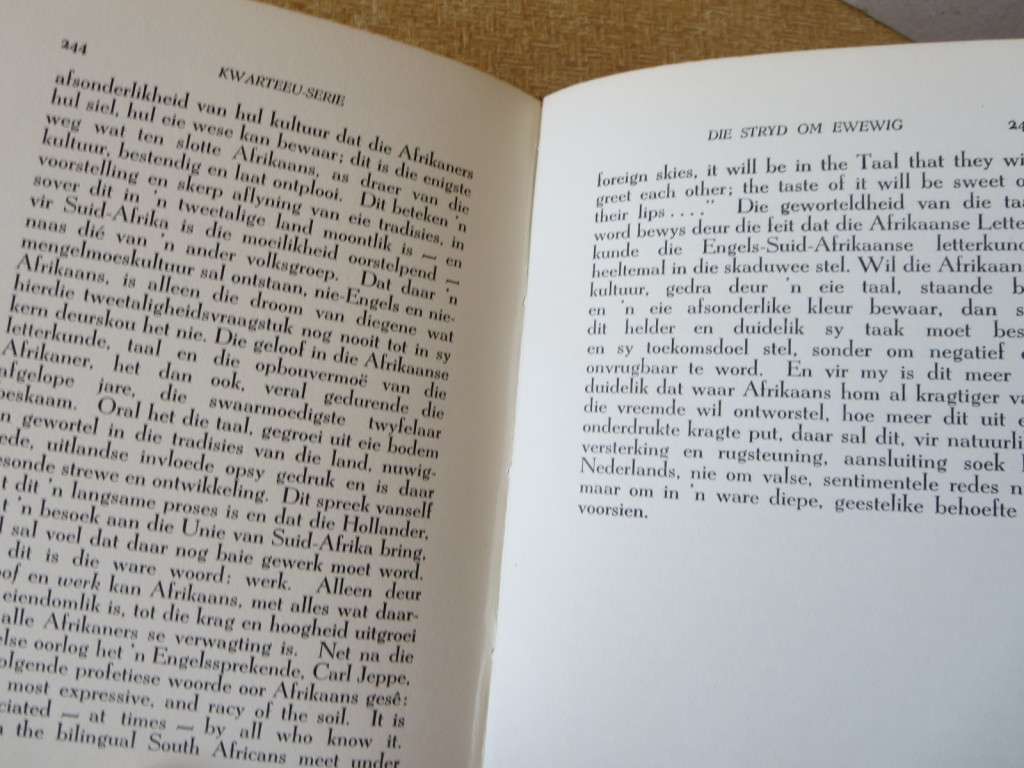 244
KWARTEEU-SERIE
afsonderlikheid van hul kultuur dat die Afrikaners
hul siel, hul eie wese kan bewaar; dit is die enigste
weg wat ten slotte Afrikaans, as draer van die
kultuur, bestendig en laat ontplooi. Dit beteken 'n
voorstelling en skerp aflyning van eie tradisies, in
sover dit in 'n tweetalige land moontlik is — en
vir Suid-Afrika is die moeilikheid oorstelpend —
naas dié van 'n ander volksgroep. Dat daar 'n
mengelmoeskultuur sal ontstaan, nie-Engels en nie-
Afrikaans, is alleen die droom van diegene wat
hierdie tweetaligheidsvraagstuk nog nooit tot in sy
kern deurskou het nie. Die geloof in die Afrikaanse
letterkunde, taal en die opbouvermoë van die
Afrikaner, het dan ook, veral gedurende die
afgelope jare, die swaarmoedigste twyfelaar
beskaam. Oral het die taal, gegroei uit eie bodem
gewortel in die tradisies van die land, nuwig-
uitlandse invloede opsy gedruk en is daar
gesonde strewe en ontwikkeling. Dit spreek vanself
dit 'n langsame proses is en dat die Hollander,
'n besoek aan die Unie van Suid-Afrika bring,
sal voel dat daar nog baie gewerk moet word.
dit is die ware woord: werk. Alleen deur
en werk kan Afrikaans, met alles wat daar-
eiendomlik is, tot die krag en hoogheid uitgroei
alle Afrikaners se verwagting is. Net na die
oorlog het 'n Engelssprekende, Carl Jeppe,
volgende profetiese woorde oor Afrikaans gesê:
most expressive, and racy of the soil. It is
— at times — by all who know it.
the bilingual South Africans meet under
DIE STRYD OM EWEWIG
24
foreign skies, it will be in the Taal that they wi
greet each other; the taste of it will be sweet o
their lips . . . ." Die geworteldheid van die taa
word bewys deur die feit dat die Afrikaanse Letter
kunde die Engels-Suid-Afrikaanse letterkund
heeltemal in die skaduwee stel. Wil die Afrikaan
kultuur, gedra deur 'n eie taal, staande b
en 'n eie afsonderlike kleur bewaar, dan s
dit helder en duidelik sy taak moet bes
en sy toekomsdoel stel, sonder om negatief e
onvrugbaar te word. En vir my is dit meer
duidelik dat waar Afrikaans hom al kragtiger va
die vreemde wil ontworstel, hoe meer dit uit e
onderdrukte kragte put, daar sal dit, vir natuurli
versterking en rugsteuning, aansluiting soek
Nederlands, nie om valse, sentimentele redes n
maar om in 'n ware diepe, geestelike behoefte
voorsien.